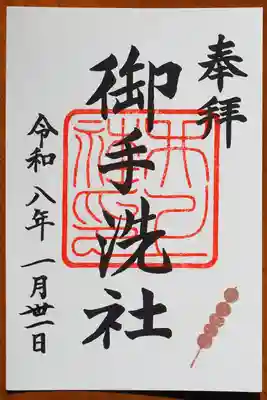 奉拝
御手洗社
令和八年一月卅一日